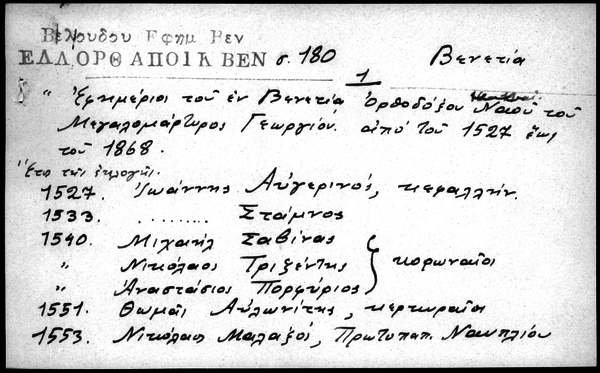 Βελουδου Εφημ Βεν
ΕΛΛΟΡΘ ΑΠΟΙΚ ΒΕΝ σ. 180 Βενετία
1
" Ἐφημέριοι τοῦ ἐν Βενετίᾳ Ὀρθοδόξου Ναοῦ τοῦ
Μεγαλομάρτυρος Γεωργίου. ἀπό τοῦ 1527 ἕως
τοῦ 1868.
Ἔτη τῆς ἐκλογῆς.
1527. Ἰωάννης Αὐγερινός, κεφαλλήν.
1533. ......... Στάμνος
1540. Μιχαήλ Σαβίνας
" Νικόλαος Τριζέντης } κορωναῖοι
" Ἀναστάσιος Πορφύριος
1551. Θωμᾶς Αὐλωνίτης, κερκυραῖος
1553. Νικόλαος Μαλαξός, Πρωτοπαπ. Ναυπλίου